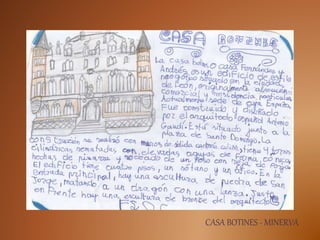 CASA BOTINES
La casa botines o casa Fernández y
Andrés es un edificio de estilo
neogótico situado en la ciudad
de León, originalmente almacén
comercial y residencia particular
Actualmente sede de caja España
Fue construido y diseñado
por el arquitecto Antonio
Gaudí. Está situado junto a la
Plaza de Santo Domingo. La
construcción se realizó con de sólida cantería caliza, tiene 4 torres
cilíndricas rematadas con elevadas agujas de forma cónica
hechas de pizarras y rodeado de un foso con rejas de forja
El edificio tiene cuatro pisos, un sótano y un ático. En la
entrada principal, hay una escultura de piedra de San
Jorge, matando a un dragón con una lanza. Justo
en frente hay una escultura de bronce del arquitecto
CASA BOTINES - MINERVA